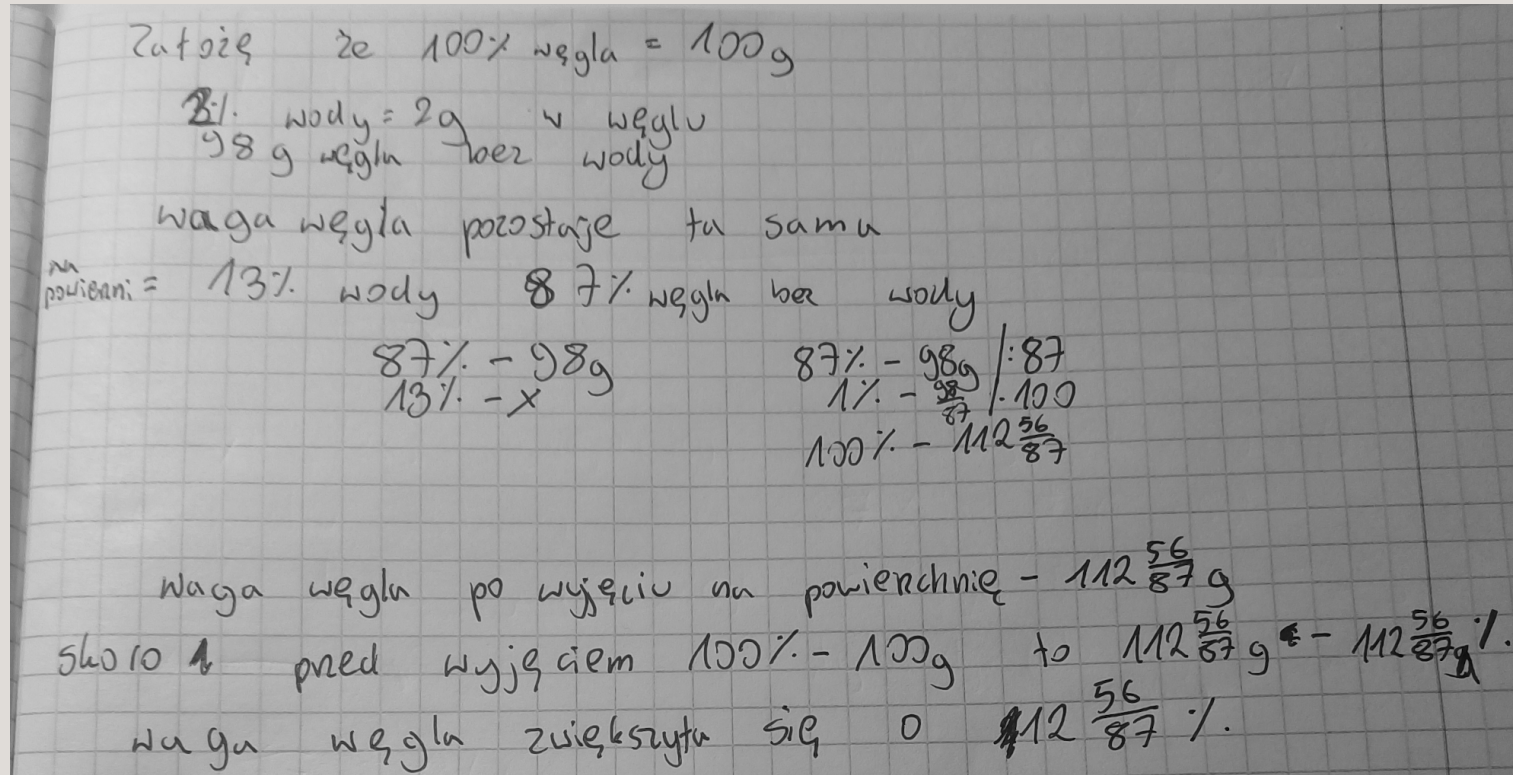 Założę że 100% węgla = 100g
2% wody = 2g w węglu
98 g węgla bez wody
waga węgla pozostaje ta sama
na powierzni = 13% wody 87% węgla bez wody
87% - 98g 87% - 98g /:87
13% - x 1% - 98/87 /·100
100% - 112 56/87
Waga węgla po wyjęciu na powierzchnię - 112 56/87 g
skoro przed wyjęciem 100% - 100g to 112 56/87 g - 112 56/87 %.
waga węgla zwiększyła się o 12 56/87 %.